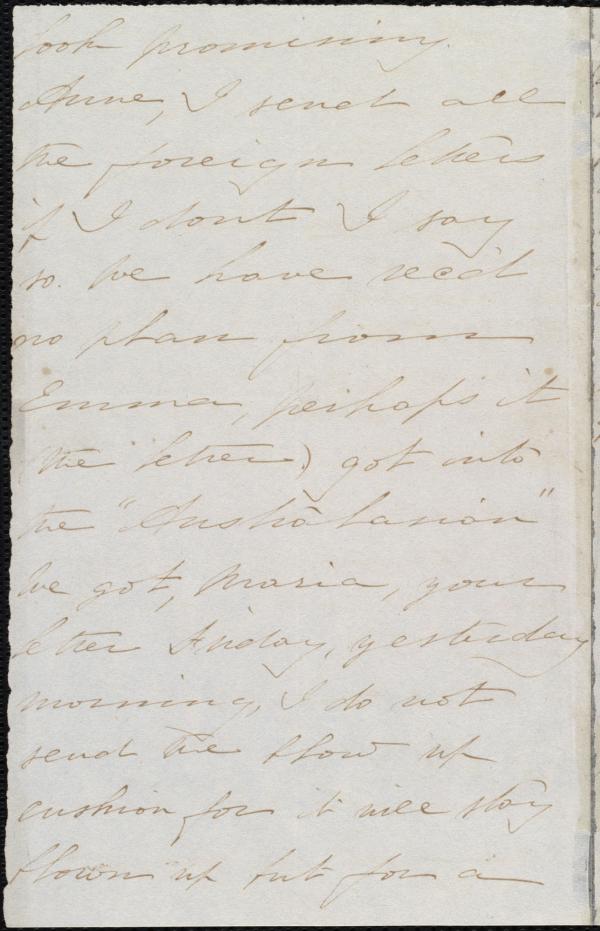 look promising.
Anne, I send all
the foreign letters
if I dont I say
so. We have rec'd
no plan from
Emma, perhaps it
(the letter) got into
the "Australasian"
We got, Maria, your
letter Friday, yesterday
morning, I do not
send the blow up
cushion for it will stay
blown up but for a